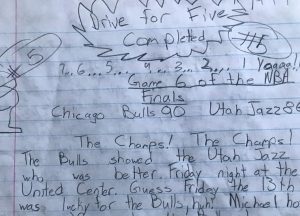 Drive for Five
Completed
#5
5
7..6...5....4...3...2....1 Yaaaa!!
Game 6 of the NBA
Finals
Chicago Bulls 90 Utah Jazz 86
The Champs! The Champs!
The Bulls showed the Utah Jazz
who was better. Friday night at the
United Center. Guess Friday the 13th
was lucky for the Bulls, huh? Michael